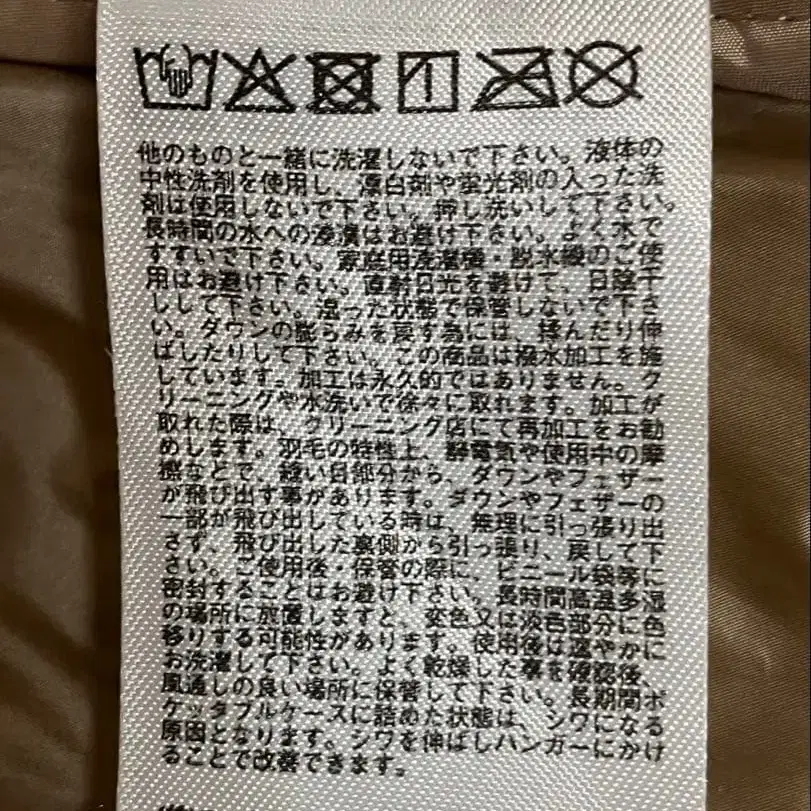 他のものと一緒に洗濯しないで下さい。液体の
中性洗剤を使用し、漂白剤や蛍光剤の入った洗
剤は使用しないで下さい。押し洗いして下さい。
長時間の水への浸漬はお避け下さい。よく水で
すすいで下さい。家庭用洗濯機・脱水機のご使
用はお避け下さい。直射日光を避けて、日陰干
しして下さい。湿った状態で保管しないで下さ
い。ダウンの膨らみを戻す為には、揉んだり伸
ばしたりして下さい。この商品は撥水加工を施
しています。加工は永久的ではありません。ク
リーニングや水洗いで徐々に取れます。加工が
取れた際は、クリーニング店にて再加工をお勧
めします。羽毛の特性上、静電気や使用中の摩
擦などで、縫い目部分から、ダウンやフェザー
が飛び出す事があります。ダウンやフェザーの
一部が飛び出している時は、無理に引っ張り出
さず、飛び出した裏側から引っ張り、戻して下
さい。ご使用後・保管の際に、ビニール袋等に
密封することはお避け下さい。長時間高温多湿
の場所に放置しますと、変色又は淡色部分に色
移りする可能性があります。使用後は速やかに
お洗濯して下さい。よく乾燥した事を確認後、
風通しの良い場所に保管して下さい。長期間ポ
ケッタブルケースに詰めた状態は、シワになる
原因となります。シワを伸ばしハンガーにかけ
ることで改善できます。